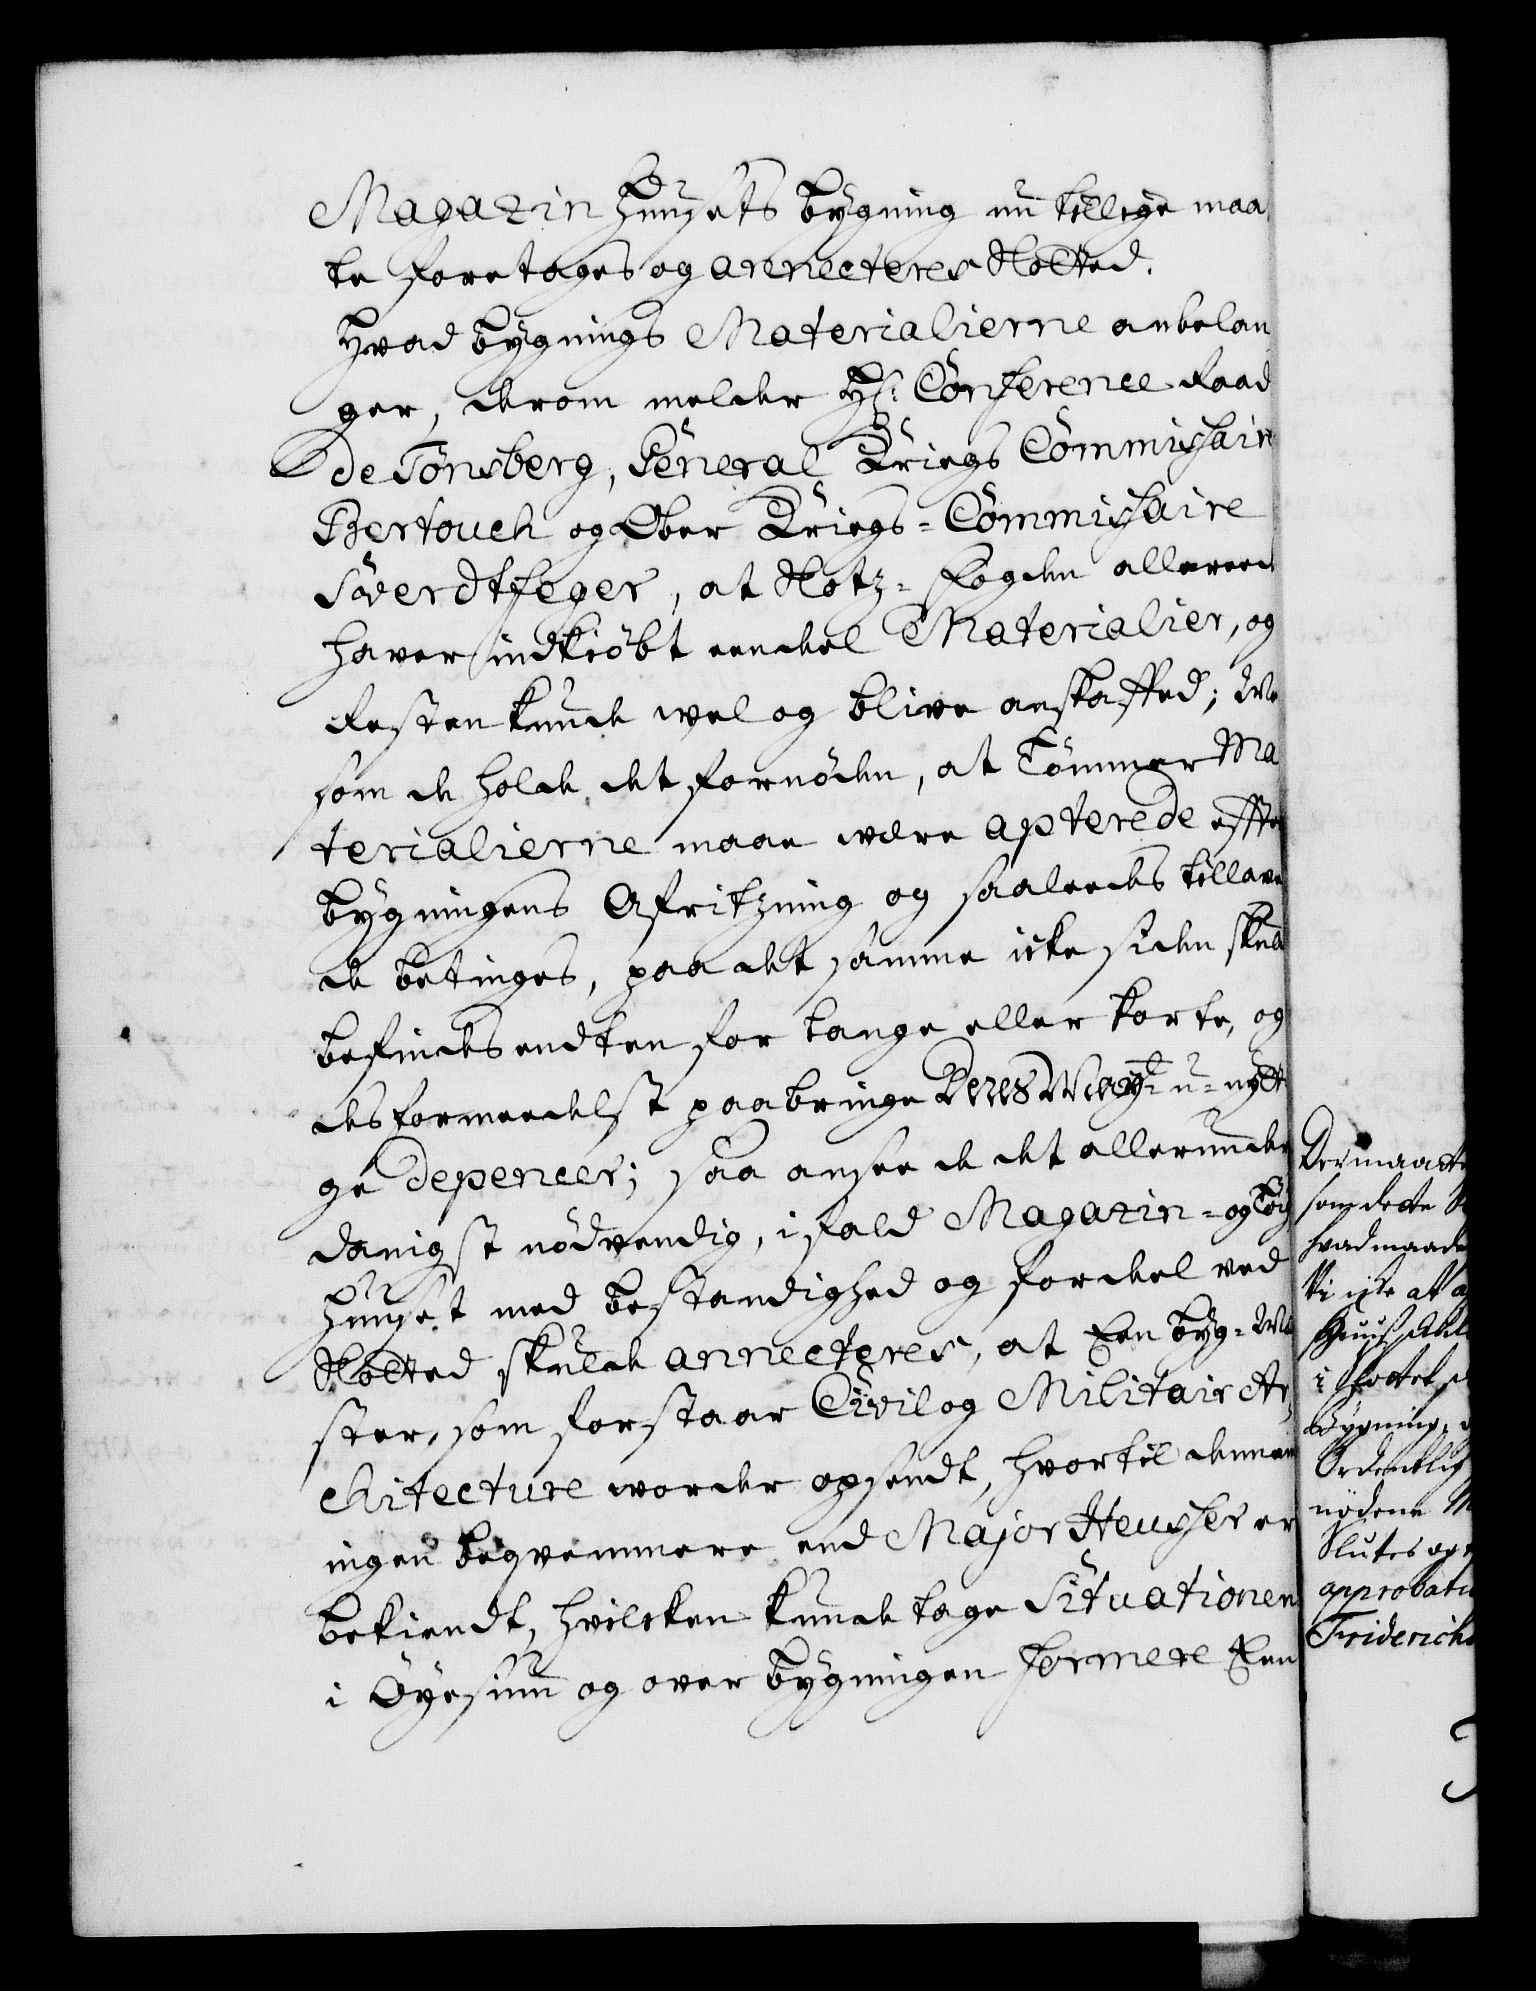 Magazin Huusets bygning nu tillige maa
te foretages og annecteres Slotted.
Hvad bygnings Materialierne anbelan
ger, derom melder Hr: Conference Raad
de Tonsberg, General Kriegs Commissair
Bertouch og Ober Kriegs-Commissaire
Sverdtfeger, at Slotz-Fogden allereede
haver indkiöbt eendeel Materialier, og
Resten kunde vel og blive anskaffed; Me
som de holde det fornöden, at Tömmer Ma
terialierne maae være apterede effter
bygningens Afritzning og saaleedes tillave
de betinges, paa det samme icke siden skul
befindes endten for lange eller korte, og
desformeedelst paabringe Deres May:t u-nytti
ge depencer; saa ansee de det allerunder
danigst nödvendig, ifald Magazin- og Töy
huuset med bestandighed og fordeel ved
Slotted skulde annecteres, at Een byg-Me
ster, som forstaar Civil og Militair Ar
chitecture vorder opsendt, hvortil dennem
ingen beqvemmere end Major Heusser er
bekiendt, hvilcken kunde tage Situationen
i Öyesiun og over bygningen formere Een
Der maatte
som dette
hvad maade
Vi icke at
Huus
i
Bygning,
Ordentlig
nödene
Slutes og
approbati
Friderichs